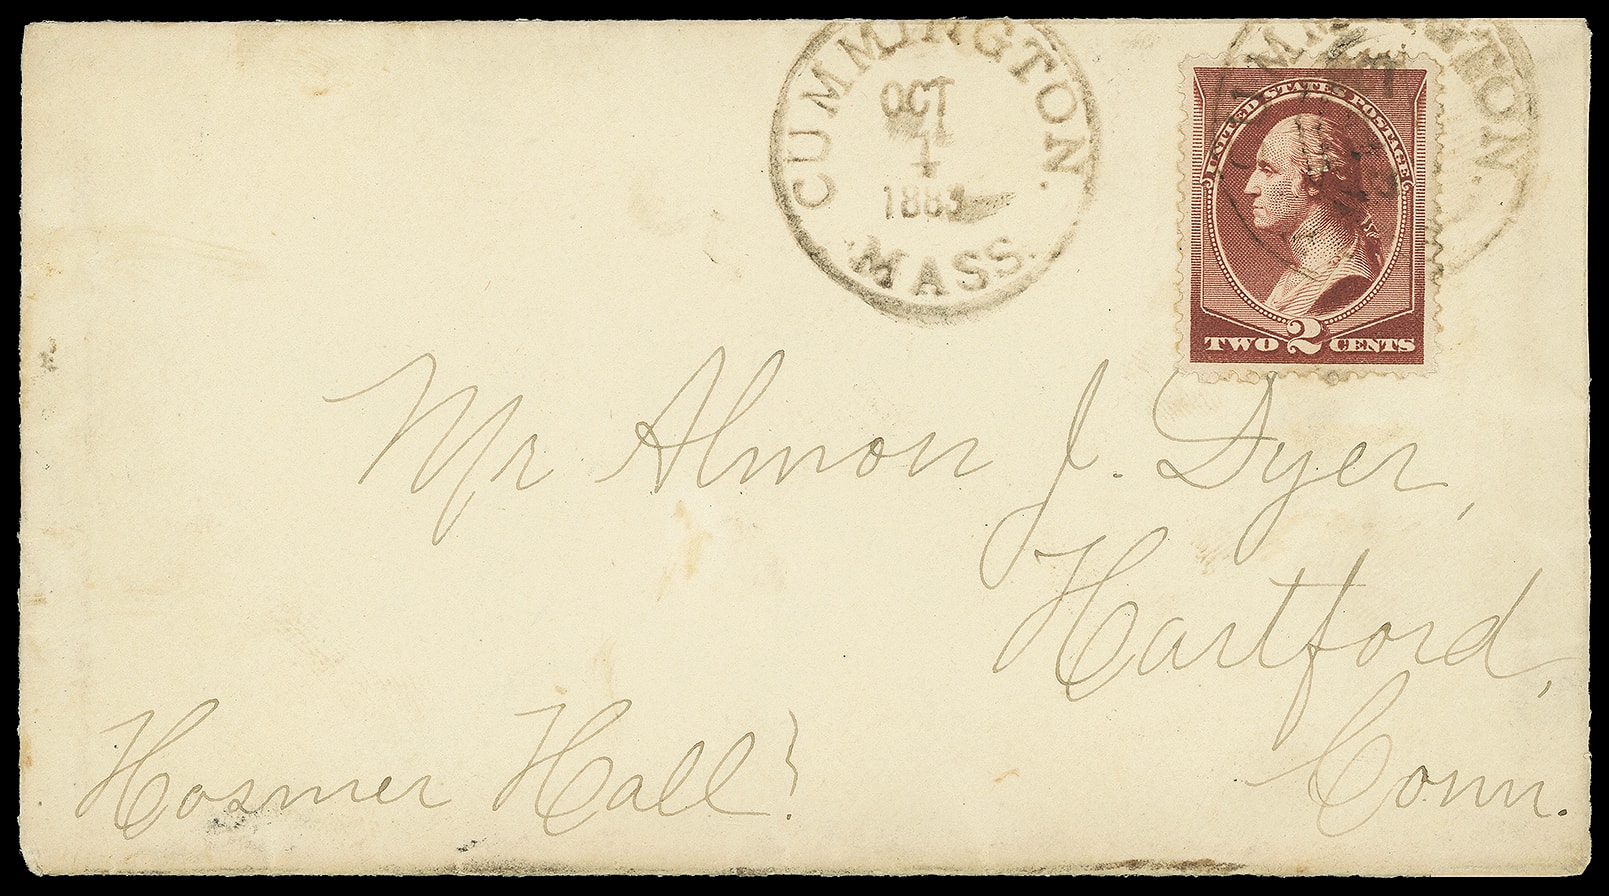 CUMMINGTON.
OCT
1
1883
MASS.
UNITED STATES POSTAGE
TWO 2 CENTS
Mr Almon J. Dyer,
Hartford,
Conn.
Hosmer Hall}